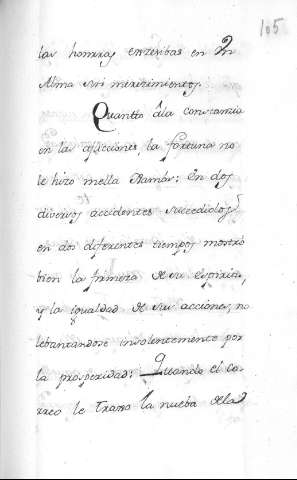 105
las honrras entretibas en Dn
Alma sus merecimientos.
Quantto â la constancia
en las aflicciones, la fortuna no
le hizo mella Ramâs: En dos
diversos accidentes succedidos
en dos diferentes tiempos mostró
bien la firmeza de su espiritu,
y la igualdad de sus acciones, no
lebantandose insolentemente por
la prosperidad: Quando el Co-
rreo le Traxo la nueba dela